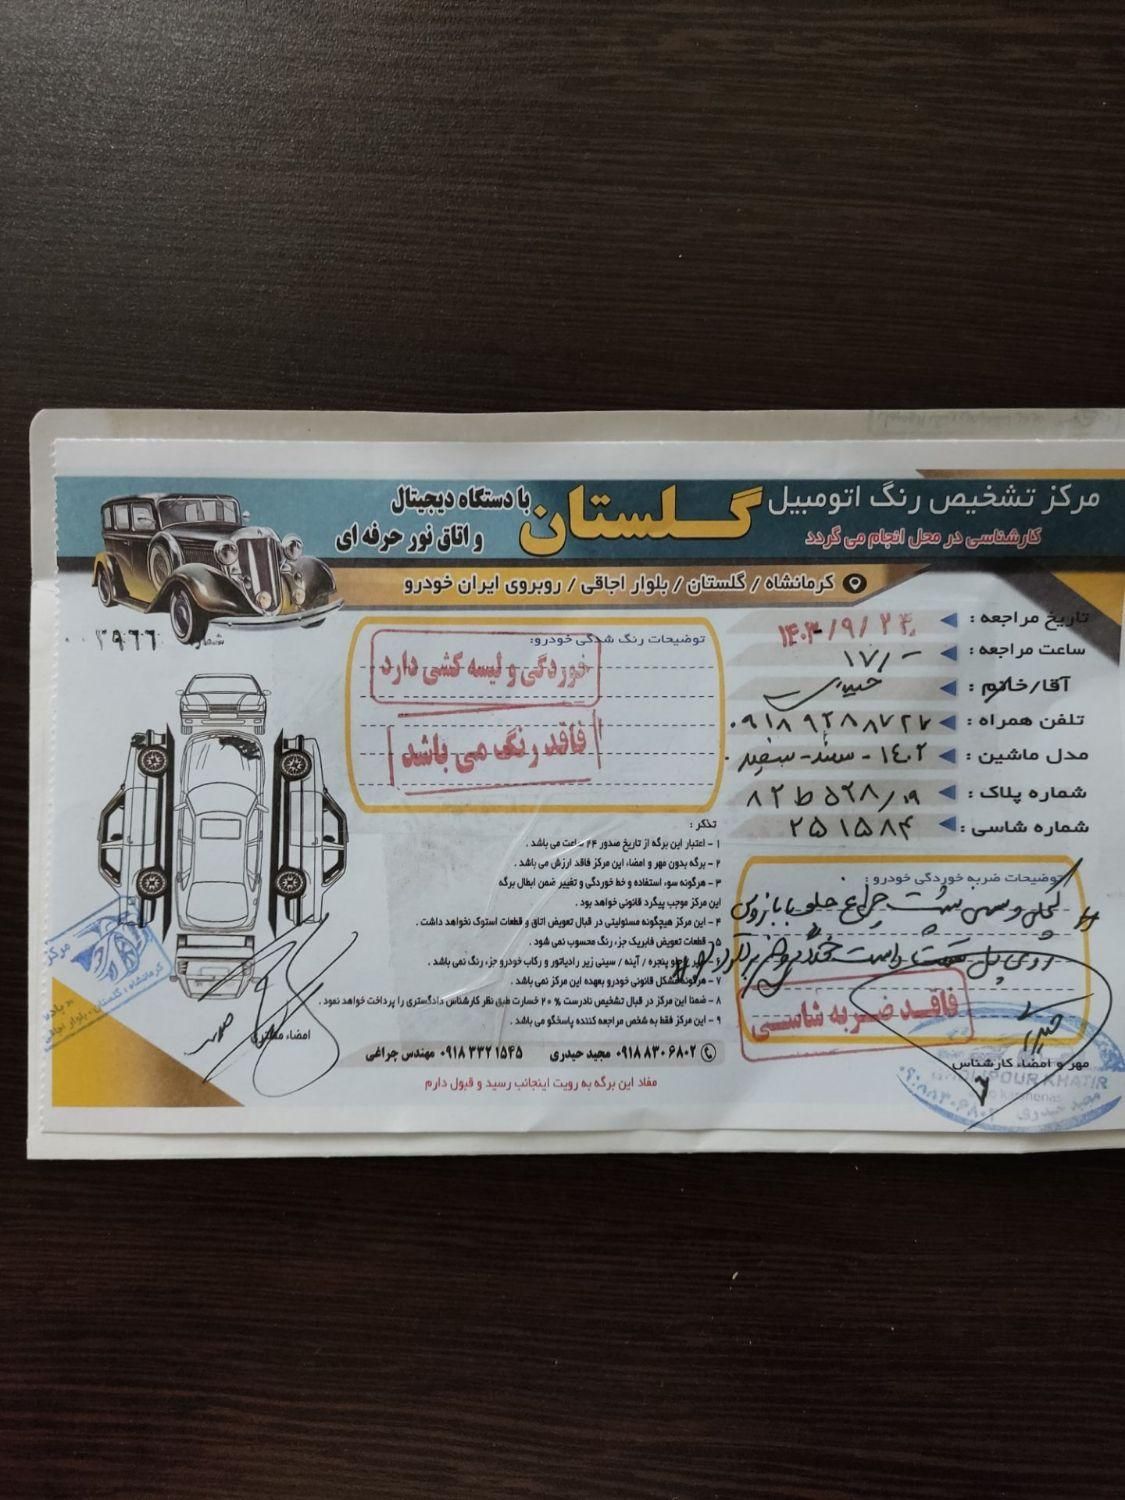 مرکز تشخیص رنگ اتومبیل
گلستان
با دستگاه دیجیتال
و اتاق نور حرفه ای
کارشناسی در محل انجام می گردد
کرمانشاه / گلستان / بلوار اجاقی / روبروی ایران خودرو
تاریخ مراجعه : ۱۴۰۳/۹/۲۴
ساعت مراجعه : ۱۷/-
آقا/خانم :
تلفن همراه : ۰۹۱۸۹۲۸۸۷۲۷
مدل ماشین : ۱۴۰۲ - سمند - سفید
شماره پلاک : ۸۲ ط ۵۲۸/۱۹
شماره شاسی : ۲۵۱۵۸۴
توضیحات ضربه خوردگی خودرو :
گلگیر و
فاقد ضربه شاسی
مهر و امضاء کارشناس
GHOLIPOUR KHATIR
مجید حیدری
شماره ۳۹۶۶
توضیحات رنگ شدگی خودرو:
خوردگی و لیسه کشی دارد
فاقد رنگ می باشد
تذکر :
۱ - اعتبار این برگه از تاریخ صدور ۲۴ ساعت می باشد .
۲ - برگه بدون مهر و امضاء این مرکز فاقد ارزش می باشد .
۳ - هرگونه سوء استفاده و خط خوردگی و تغییر ضمن ابطال برگه
این مرکز موجب پیگرد قانونی خواهد بود .
۴ - این مرکز هیچگونه مسئولیتی در قبال تعویض اتاق و قطعات استوک نخواهد داشت .
۵ - قطعات تعویض فابریک جزء رنگ محسوب نمی شود .
جلو پنجره / آینه / سینی زیر رادیاتور و رکاب خودرو جزء رنگ نمی باشد .
۷ - هرگونه مشکل قانونی خودرو بعهده این مرکز نمی باشد .
۸ - ضمنا این مرکز در قبال تشخیص نادرست ۲۰ % خسارت طبق نظر کارشناس دادگستری را پرداخت خواهد نمود .
۹ - این مرکز فقط به شخص مراجعه کننده پاسخگو می باشد .
۰۹۱۸ ۸۳۰ ۶۸۰۲ مجید حیدری ۰۹۱۸ ۳۳۲ ۱۵۴۵ مهندس چراغی
مفاد این برگه به رویت اینجانب رسید و قبول دارم
امضاء مشتری
مرکز
کرمانشاه : گلستان - بلوار اجاقی